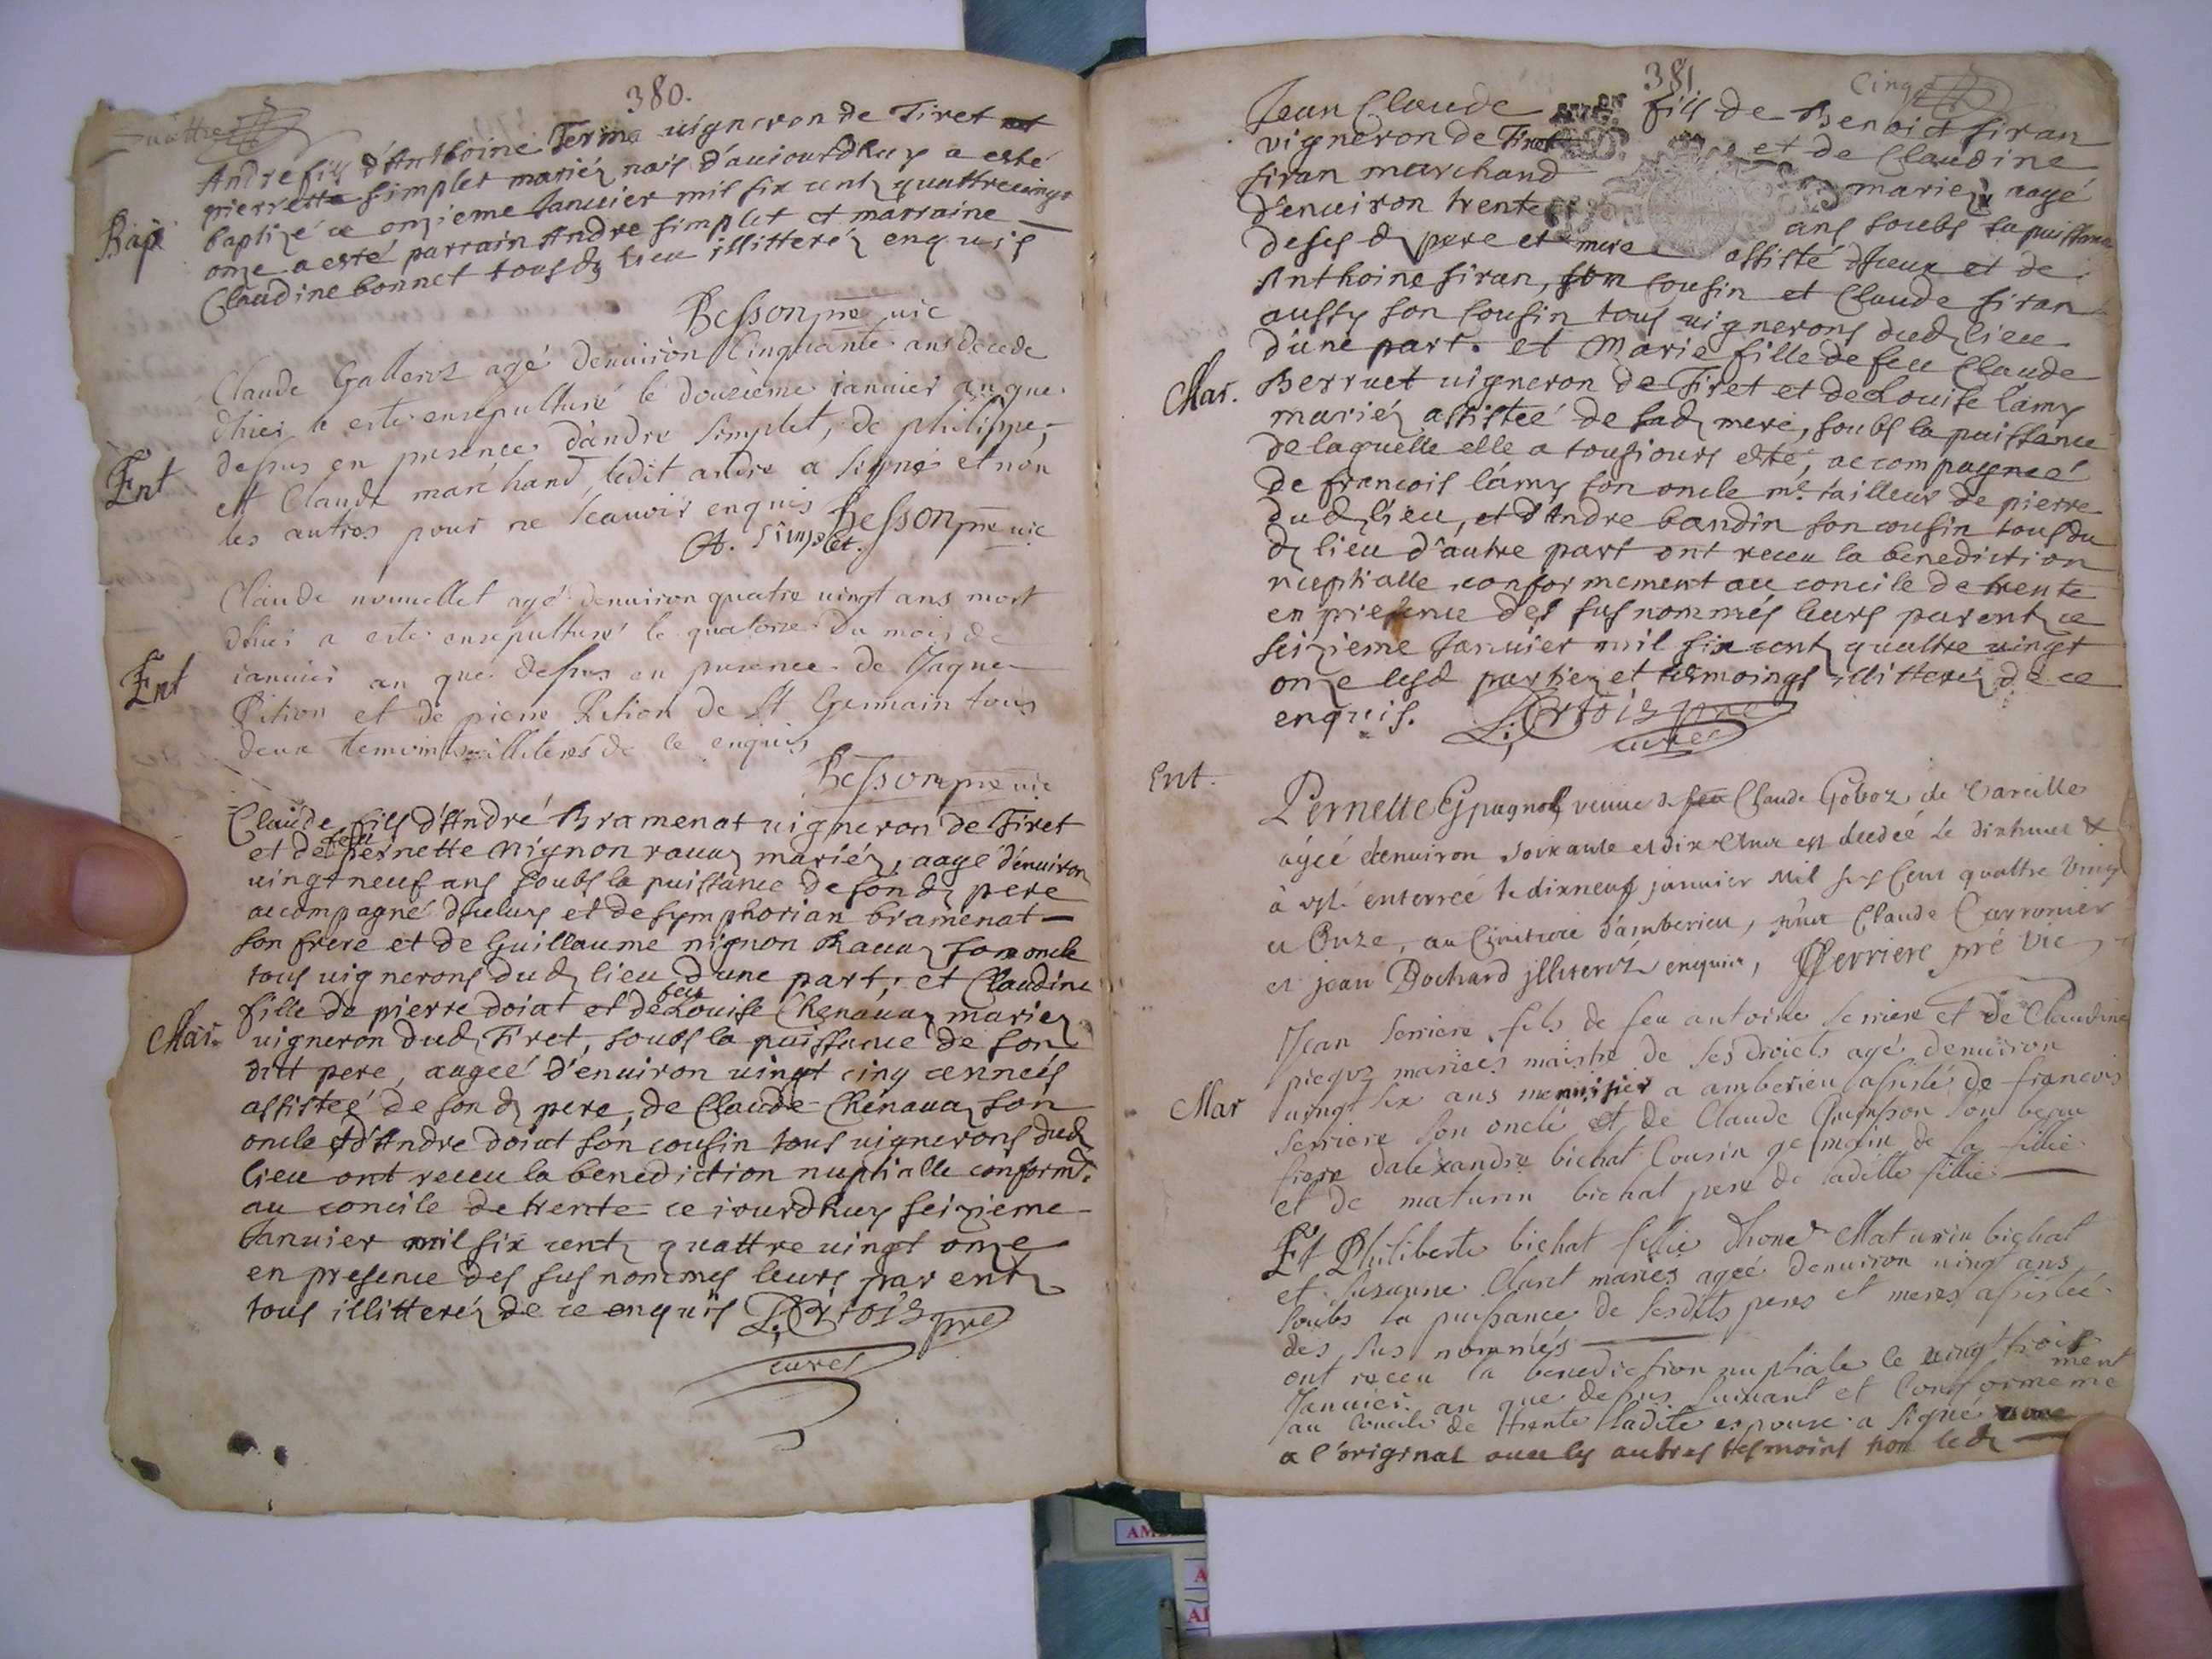 380.
quattre
Andre fils d'Anthoine Terme uigneron de Tiret et
pierrette simplet mariéz nais d'auiourdhuy a esté
Bap
baptizé ce onzieme Januier mil six centz quattreuingt
onze a esté parrain Andre simplet et marraine
Claudine bonnet tous dud lieu illitteréz enquis
Besson pre uic
Claude Galleret agé denuiron Cinquante ans decede
dhier a esté ensepulturé le douzieme ianuier an que
Ent
dessus en presence d'andre Simplet, de philippe,
et Claude marchand ledit andre a signé et non
les autres pour ne scauoir enquis Besson pre uic
A. Simplet.
Claude nouuellet agé denuiron quatre uingt ans mort
dhier a esté ensepulturé le quatorze du mois de
Ent
ianuier an que dessus en presence de Jaque
Pition et de pierre Pition de St Germain tous
deux temoints illiterés de ce enquis
Besson pre uic
Claude fils d'André Bramenat uigneron de Tiret
et de feu pernette nignon rauaz mariéz, aagé d'enuiron
uingt neuf ans soubs la puissance de son d pere
accompagné d'iceluy et de symphorian bramenat
son frere et de Guillaume nignon Rauaz son oncle
tous uignerons dud lieu d'une part, et Claudine
fille de pierre doiat et de feu Louise Chenauaz mariez
Mar.
uigneron dud Tiret, soubs la puissance de son
dit pere, aagée d'enuiron uingt cinq années
assistée de son d pere, de Claude Chenauaz son
oncle et d'Andre doiat son cousin tous uignerons dud
lieu ont receu la benediction nuptialle conformt
au concile de trente ce iourdhuy seizieme
Januier mil six centz quattre uingt onze
en presence des susnommés leurs parentz
tous illitteréz de ce enquis pre
curé
381
Cinq
Jean Claude fils de Benoict siran
vigneron de Tiret et de Claudine
siran marchand mariez aagé
d'enuiron trente ans soubs la puissance
deses d pere et mere assisté d'iceux et de
Anthoine siran, son cousin et Claude siran
aussy son cousin tous uignerons dud lieu
d'une part. et Marie fille de feu Claude
Mar.
Berruet uigneron de Tiret et de Louise lamy
mariéz assistée de sad mere, soubs la puissance
de laquelle elle a tousiours esté, accompagnée
de francois lamy son oncle me tailleur de pierre
dud lieu, et d'Andre baudin son cousin tous du
d lieu d'autre part ont receu la benediction
nuptialle conformement au concile de trente
en presence des susnommés leurs parentz ce
seizieme Januier mil six centz quattre uingt
onze lesd partiez et tesmoings illitteréz de ce
enquis. pre
curé
Ent.
Pernette Espagnol veuue de feu Claude Goboz de Vareille
agée denuiron soixante et dix ans est decedée le dixhuit &
à esté enterrée le dixneuf januier Mil six Cent quattre Vingt
et Onze, au Cimitiere d'amberieu, Claude Carronier
et jean Dochard jlliteréz enquis, Ferriere pré Vic
Jean serriere fils de feu antoine serriere et de Claudine
mariees maistre de ses droicts agé denuiron
Mar
uingt six ans menusier a amberieu assisté de francois
serriere son oncle et de Claude son beau
frere dalexandre bichat Cousin germain de la fillie
et de maturin bichat pere de ladite fillie
Et Philiberte bichat fillie dhone Maturin bichat
et suzanne Claret mariés agée denuiron uingt ans
soubs la puissance de sesdits peres et meres assistée
des sus nommés
ont receu la benediction nuptiale le uingt trois
Januier an que dessus suiuant et conformement
au Concile de trente ladite espouse a signé
a l'original auec les autres tesmoins non led